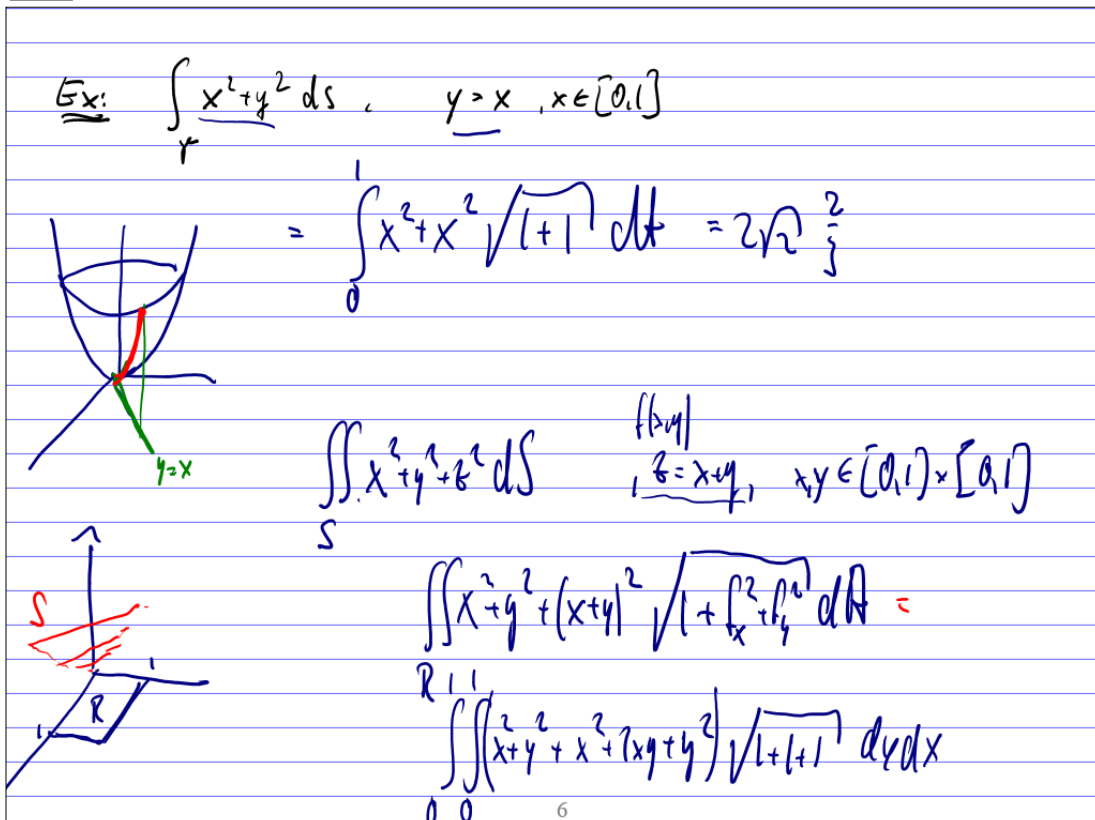 Ex: ∫_γ x²+y² ds , y = x , x∈[0,1]
= ∫_0^1 x²+x² √(1+1) dt = 2√2 2/3
y=x
f(x,y)
∬_S x²+y²+z² dS , z = x+y , x,y ∈ [0,1]×[0,1]
S
∬_R x²+y²+(x+y)² √(1+f_x²+f_y²) dA =
1
R
1
∫_0^1 ∫_0^1 (x²+y²+x²+2xy+y²) √(1+1+1) dydx
6